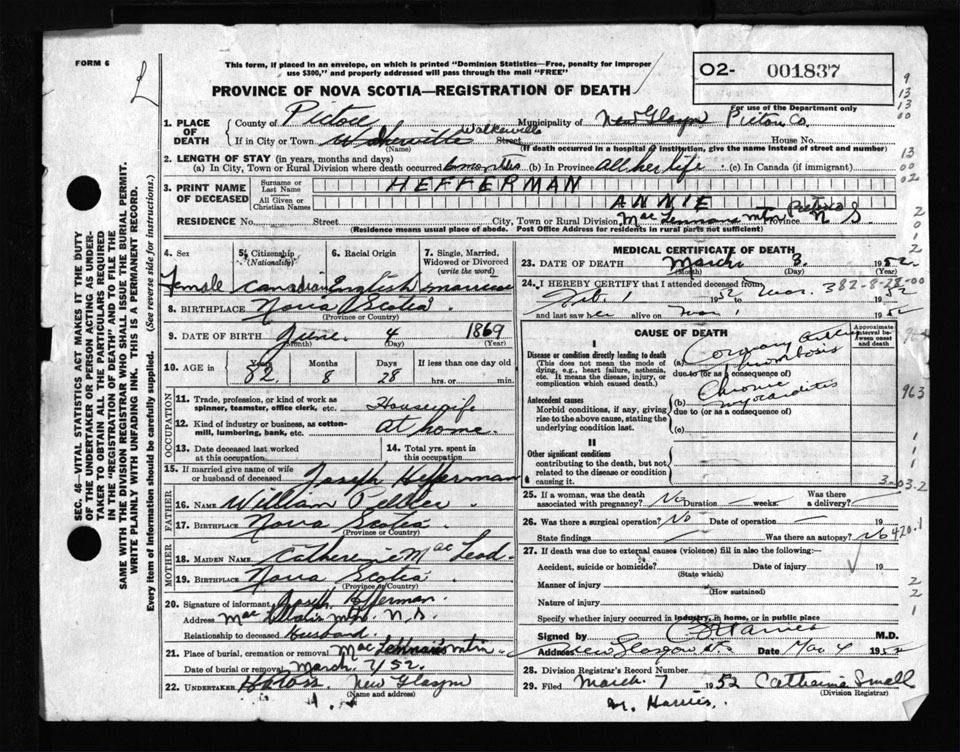 FORM 6
This form, if placed in an envelope, on which is printed "Dominion Statistics—Free, penalty for improper
use $300," and properly addressed will pass through the mail "FREE"
02- 001837
For use of the Department only
PROVINCE OF NOVA SCOTIA—REGISTRATION OF DEATH
SEC. 46—VITAL STATISTICS ACT MAKES IT THE DUTY
OF THE UNDERTAKER OR PERSON ACTING AS UNDER-
TAKER TO OBTAIN ALL THE PARTICULARS REQUIRED
IN THE "REGISTRATION OF DEATH" AND TO FILE THE
SAME WITH THE DIVISION REGISTRAR WHO SHALL ISSUE THE BURIAL PERMIT.
WRITE PLAINLY WITH UNFADING INK. THIS IS A PERMANENT RECORD.
Every item of information should be carefully supplied. (See reverse side for instructions.)
1. PLACE OF DEATH County of Pictou Municipality of New Glasgow Pictou Co.
If in City or Town Walkerville Street House No.
(Name) (If death occurred in a hospital or institution, give the name instead of street and number)
2. LENGTH OF STAY (in years, months and days)
(a) In City, Town or Rural Division where death occurred 6 months (b) In Province All her life (c) In Canada (if immigrant)
3. PRINT NAME OF DECEASED Surname or Last Name HEFFERMAN
All Given or Christian Names ANNIE
RESIDENCE No. Street City, Town or Rural Division MacLennans Mtn Pictou Co Province N S
(Residence means usual place of abode. Post Office Address for residents in rural parts not sufficient)
4. Sex Female
5. Citizenship (Nationality) Canadian
6. Racial Origin English
7. Single, Married, Widowed or Divorced (write the word) married
8. BIRTHPLACE Nova Scotia
(Province or Country)
9. DATE OF BIRTH June 4 1869
(Month) (Day) (Year)
10. AGE in Years 82 Months 8 Days 28 If less than one day old hrs. or min.
OCCUPATION
11. Trade, profession, or kind of work as
spinner, teamster, office clerk, etc. Housewife
12. Kind of industry or business, as cotton-
mill, lumbering, bank, etc. At home.
13. Date deceased last worked at this occupation
14. Total yrs. spent in this occupation
15. If married give name of wife
or husband of deceased Joseph Hefferman
FATHER
16. Name William
17. Birthplace Nova Scotia
(Province or Country)
MOTHER
18. Maiden Name Catherine MacLeod
19. Birthplace Nova Scotia
(Province or Country)
20. Signature of informant Joseph Hefferman
Address Mtn. N.S.
Relationship to deceased Husband.
21. Place of burial, cremation or removal MacLennans mtn
Date of burial or removal March 7/52.
22. UNDERTAKER New Glasgow
(Name and address)
MEDICAL CERTIFICATE OF DEATH
23. DATE OF DEATH March 3 1952
(Month) (Day) (Year)
24. I HEREBY CERTIFY that I attended deceased from
Feb. 1 1952 to Mar. 3 1952
82-8-28-00
and last saw her alive on Mar 1 1952
CAUSE OF DEATH
Approximate interval between onset and death
I
Disease or condition directly leading to death
(This does not mean the mode of
dying, e.g., heart failure, asthenia,
etc. It means the disease, injury, or
complication which caused death.)
(a) Coronary Artery Thrombosis
due to (or as a consequence of)
Antecedent causes
Morbid conditions, if any, giving
rise to the above cause, stating the
underlying condition last.
(b) Chronic myocarditis
due to (or as a consequence of)
(c)
II
Other significant conditions
contributing to the death, but not
related to the disease or condition
causing it
25. If a woman, was the death associated with pregnancy? No Duration — weeks. Was there a delivery? —
26. Was there a surgical operation? No Date of operation — 19
State findings — Was there an autopsy? No
420.1
27. If death was due to external causes (violence) fill in also the following:—
Accident, suicide or homicide? Date of injury 19
(State which)
Manner of injury
(How sustained)
Nature of injury
Specify whether injury occurred in industry, in home, or in public place
Signed by M.D.
Address New Glasgow N.S. Date Mar 4 1952
28. Division Registrar's Record Number
29. Filed March 7 1952 Catharine Small
(Division Registrar)
Harris.